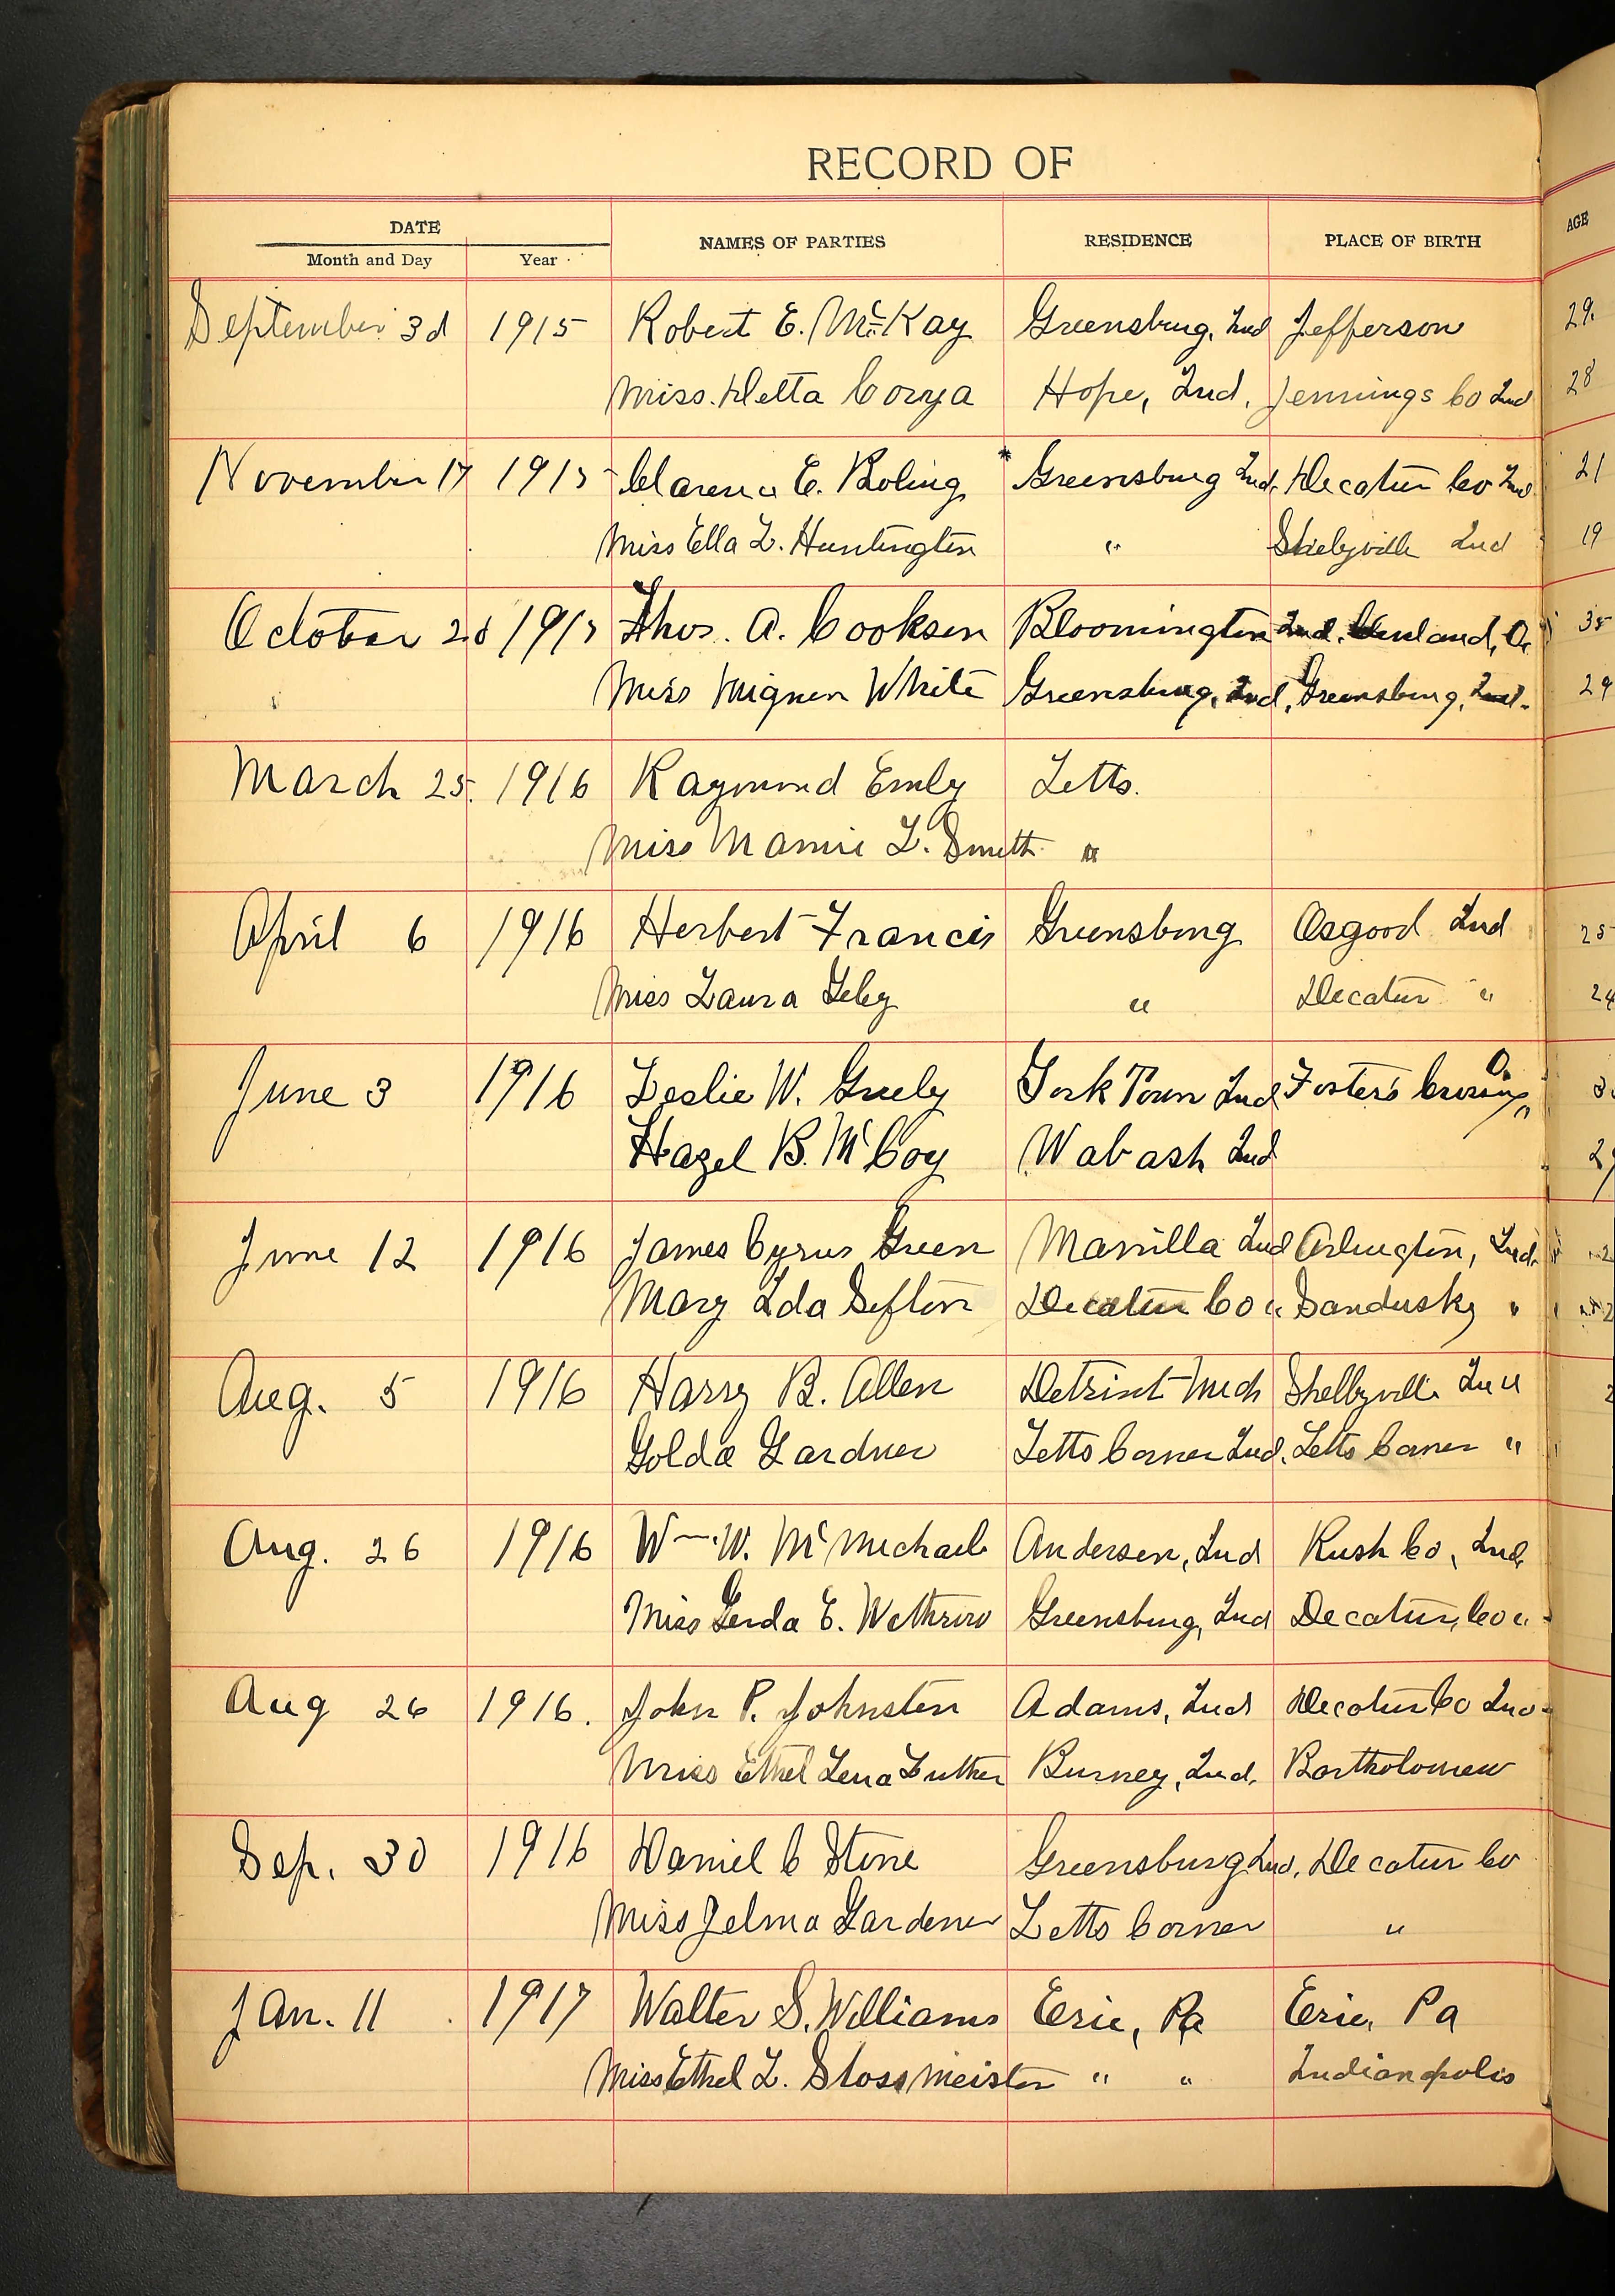 RECORD OF
DATE NAMES OF PARTIES RESIDENCE PLACE OF BIRTH AGE
Month and Day Year
September 3d 1915 Robert E. McKay Greensburg, Ind Jefferson 29.
Miss. Detta Corya Hope, Ind. Jennings Co Ind 28
November 17 1915 Clarence E. Boling * Greensburg Ind. Decatur Co Ind 21
Miss Ella L. Huntington " Shelbyville Ind 19
October 28 1915 Thos. A. Cookson Bloomington Ind. O. 35
Miss Mignon White Greensburg, Ind. Greensburg, Ind. 29
March 25. 1916 Raymond Emly Letts.
Miss Mamie L. Smith "
April 6 1916 Herbert Francis Greensburg Osgood Ind 25
Miss Laura " Decatur " 24
June 3 1916 Leslie W. Greely York Town Ind Foster's Crossing, O.
Hazel B. McCoy Wabash Ind
June 12 1916 James Cyrus Green Manilla Ind Arlington, Ind.
Mary Ida Sefton Decatur Co " Sandusky "
Aug. 5 1916 Harry B. Allen Detroit Mich Shelbyville Ind
Golda Gardner Letts Corner Ind. Letts Corner "
Aug. 26 1916 Wm. W. McMichael Anderson, Ind Rush Co, Ind
Miss E. Greensburg, Ind Decatur, Co "
Aug 26 1916. John P. Johnston Adams, Ind Decatur Co Ind
Miss Ethel Lena Luther Burney, Ind. Bartholomew
Sep. 30 1916 Daniel C Stone Greensburg Ind. Decatur Co
Miss Zelma Gardener Letts Corner "
Jan. 11 1917 Walter S. Williams Erie, Pa Erie, Pa
Miss Ethel L. Slossmeister " " Indianapolis